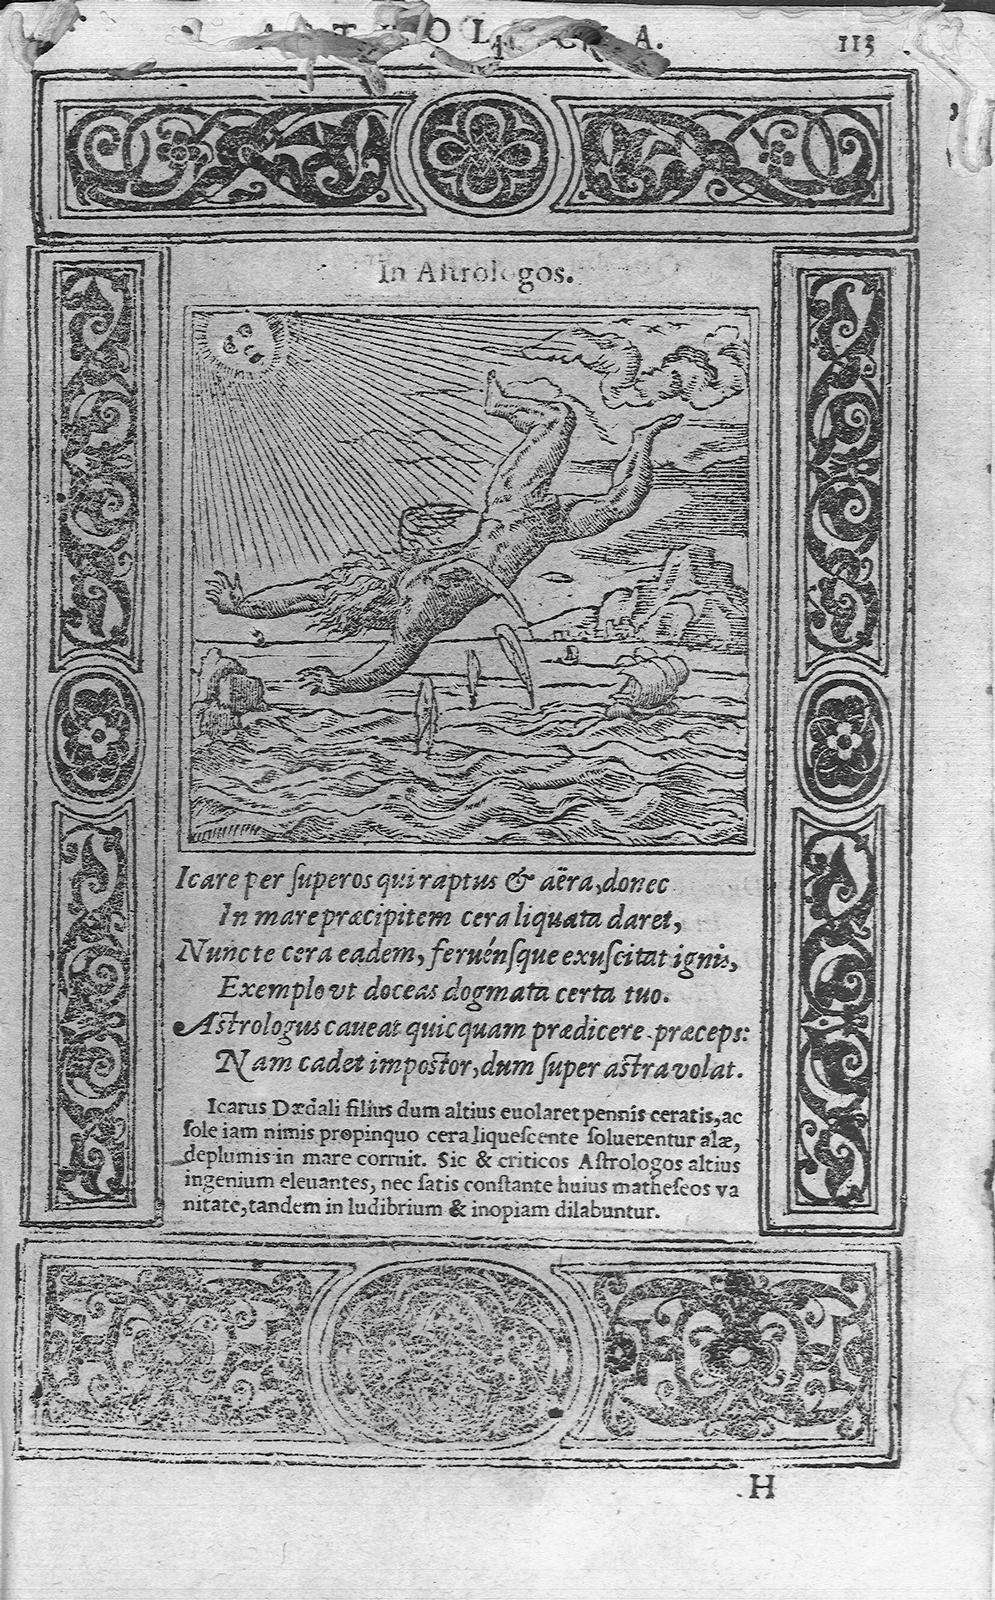 ASTROLOGICA. 113
In Astrologos.
Icare per ſuperos qui raptus & aëra, donec
In mare præcipitem cera liquata daret,
Nunc te cera eadem, feruénſque exuſcitat ignis,
Exemplo vt doceas dogmata certa tuo.
Aſtrologus caueat quicquam prædicere præceps:
Nam cadet impoſtor, dum ſuper aſtra volat.
Icarus Dædali filius dum altius euolaret pennis ceratis, ac
ſole iam nimis propinquo cera liqueſcente ſoluerentur alæ,
deplumis in mare corruit. Sic & criticos Aſtrologos altius
ingenium eleuantes, nec ſatis conſtante huius matheſeos va
nitate, tandem in ludibrium & inopiam dilabuntur.
H